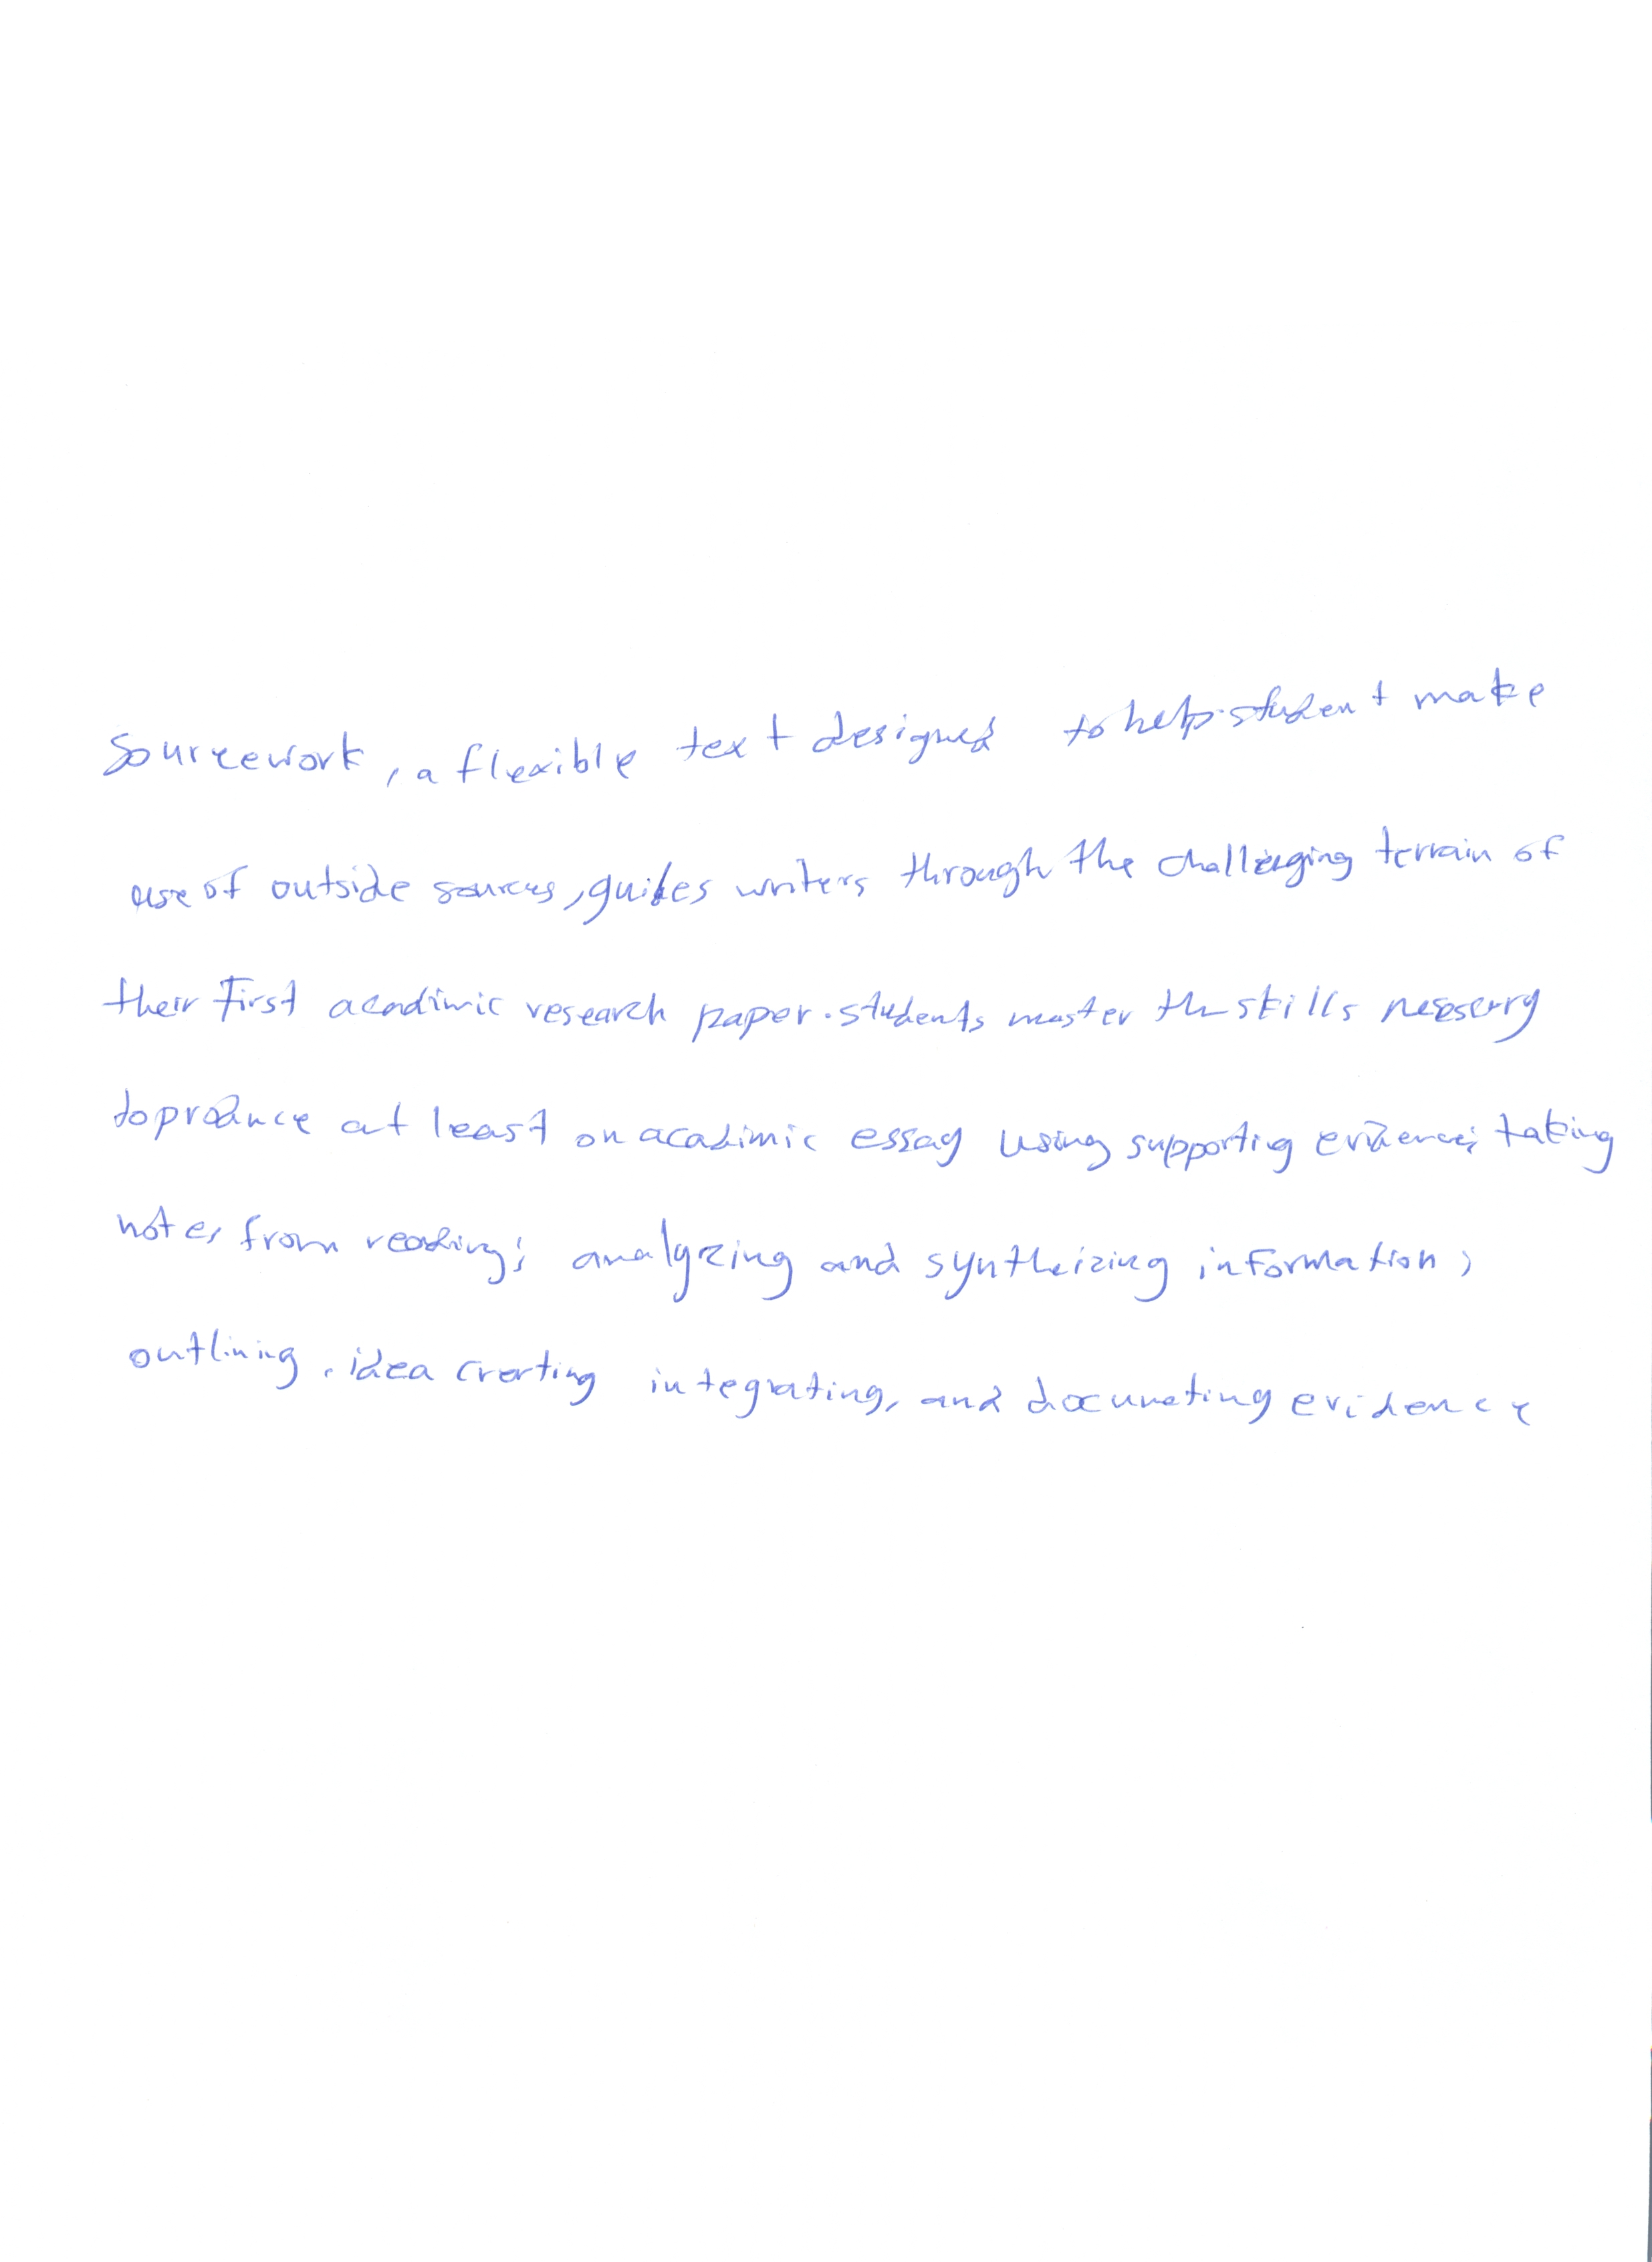 Sourcework, a flexible text designed to help student make
use of outside sources, guides writers through the challenging terrain of
their First acadimic research paper. students master the skills
to produce at least on acadimic essay using supporting evidence; taking
notes from reading; analyzing and syntheizing information,
outlining. idea crerting integrating, and documeting evidence